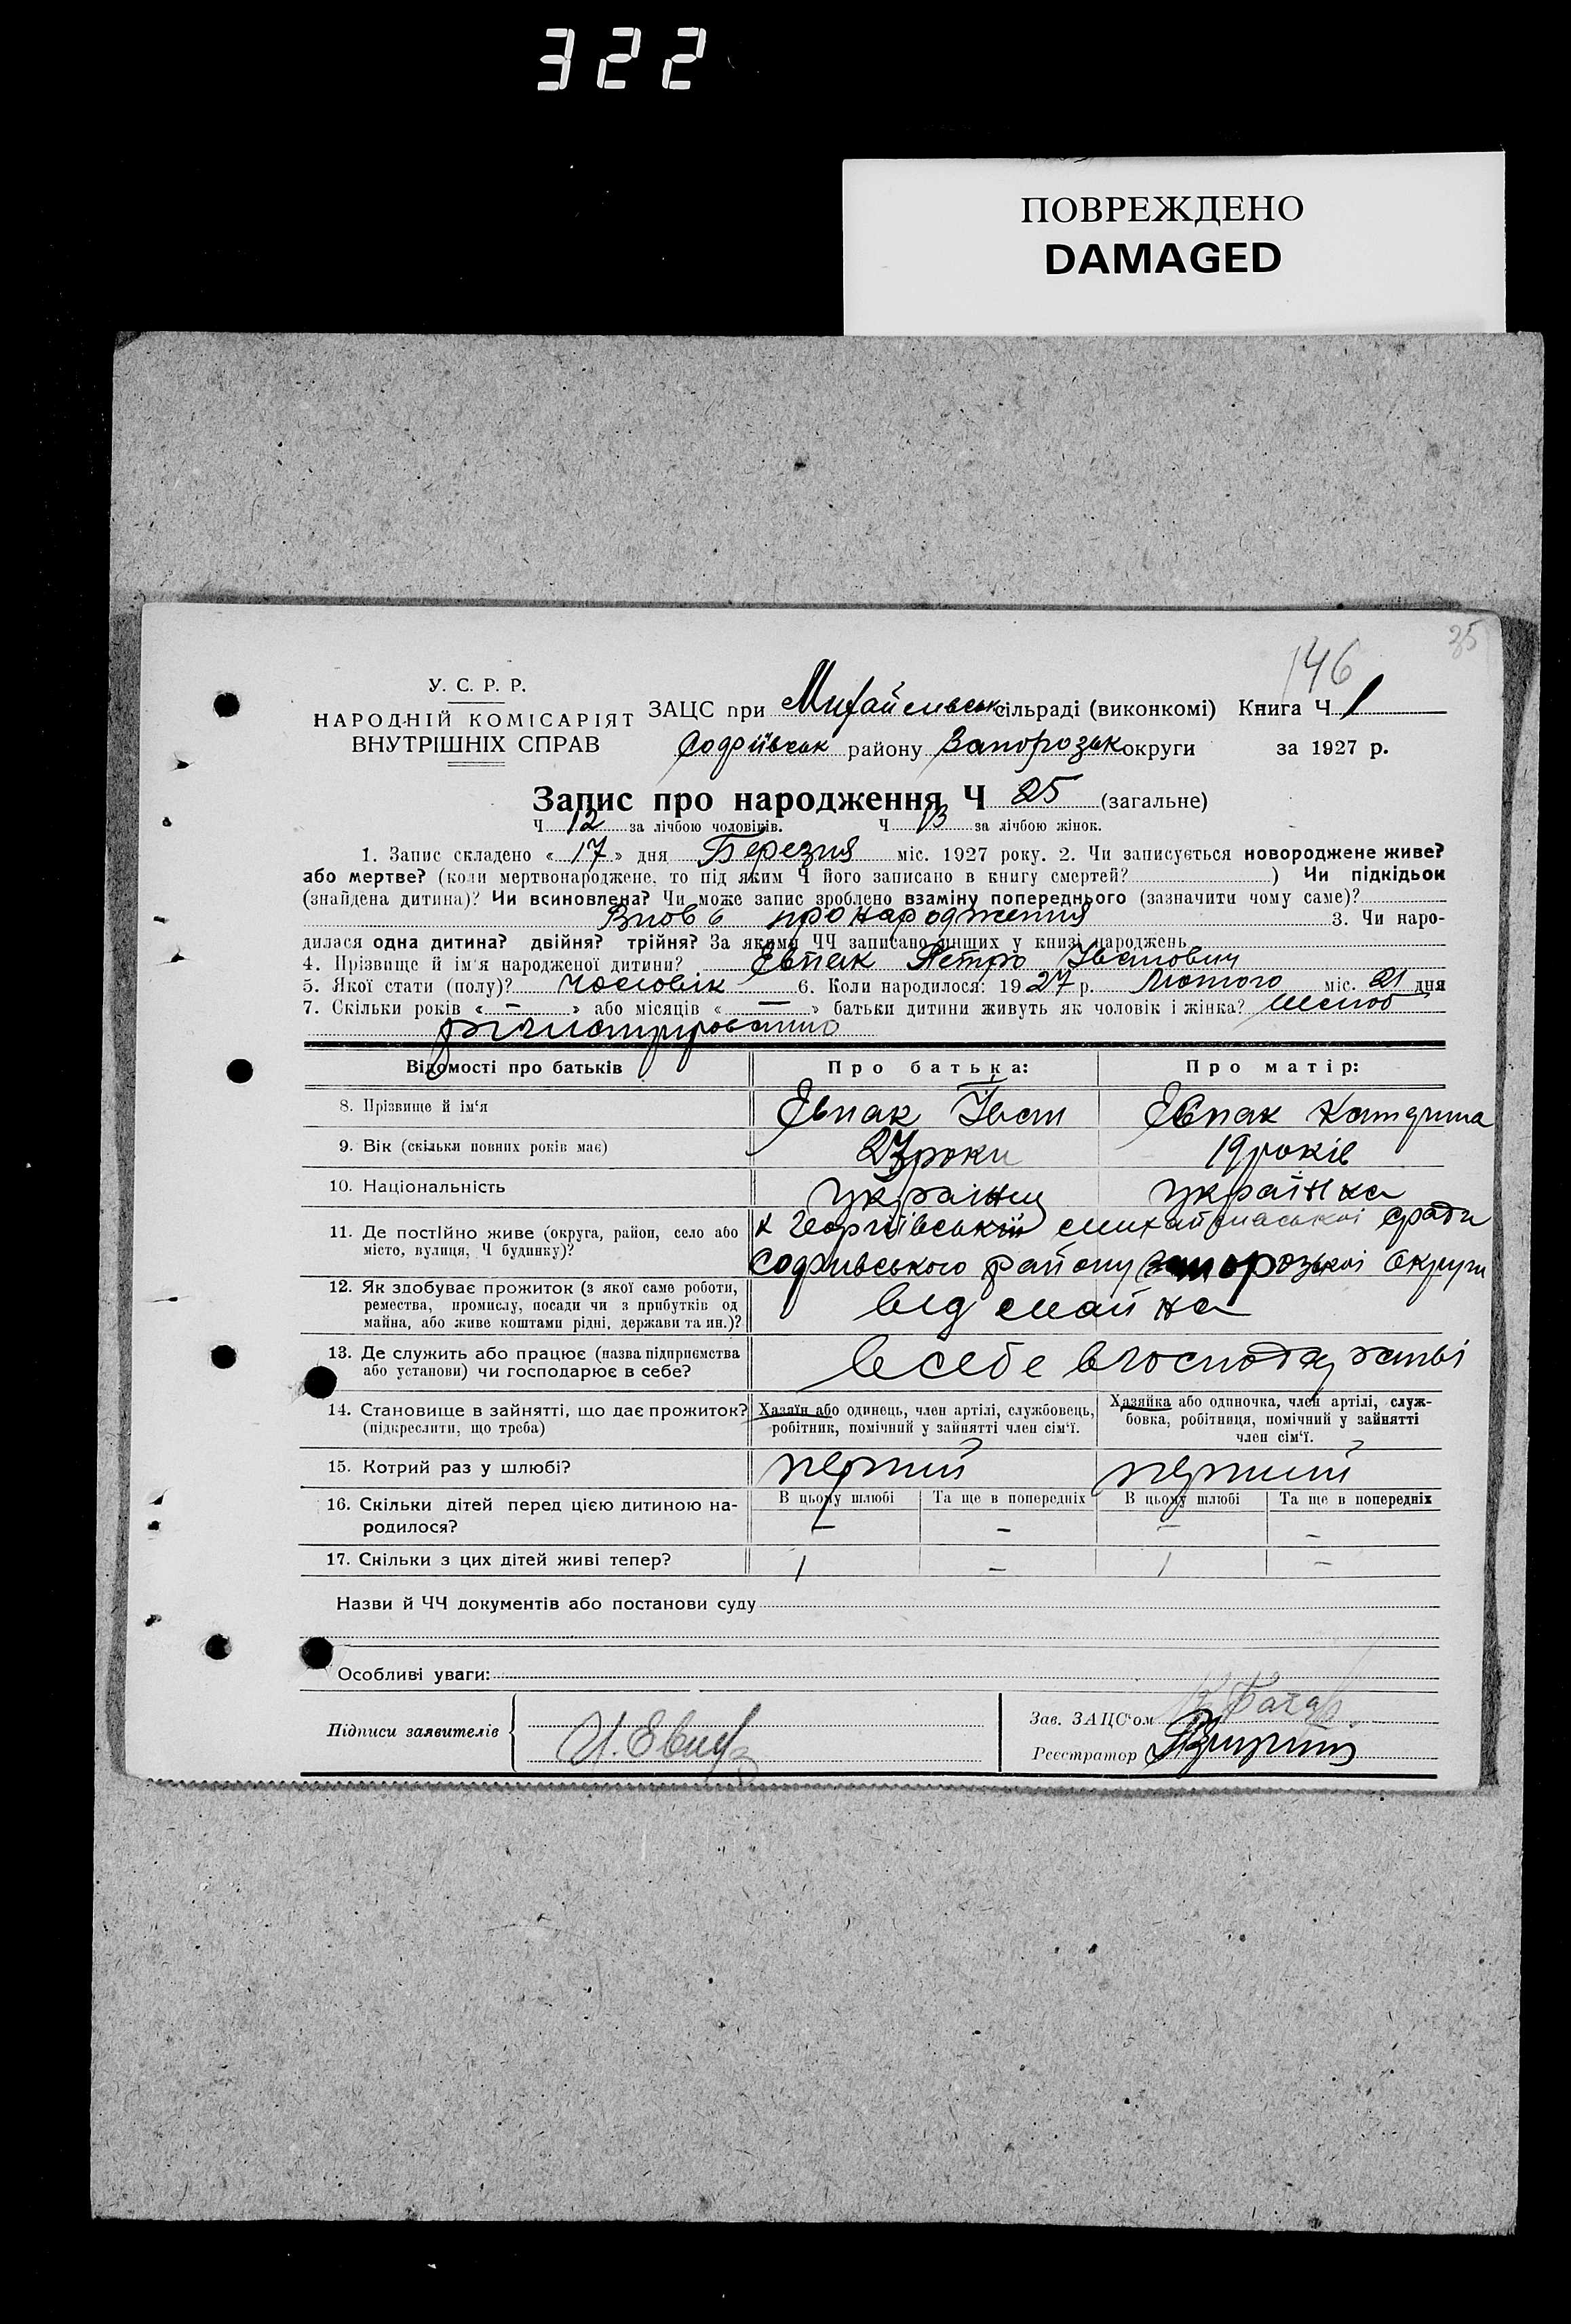 322
ПОВРЕЖДЕНО
DAMAGED
35
146
У. С. Р. Р.
НАРОДНІЙ КОМІСАРІЯТ
ВНУТРІШНІХ СПРАВ
ЗАЦС при Михайлівськ сільраді (виконкомі) Книга Ч 1
Софіївськ району Запорозьк округи за 1927 р.
Запис про народження Ч 25 (загальне)
Ч 12 за лічбою чоловіків. Ч 13 за лічбою жінок.
1. Запис складено « 17 » дня Березня міс. 1927 року. 2. Чи записується новороджене живе?
або мертве? (коли мертвонароджене, то під яким Ч його записано в книгу смертей? ) Чи підкідьок
(знайдена дитина)? Чи всиновлена? Чи може запис зроблено взаміну попереднього (зазначити чому саме)?
про народження 3. Чи наро-
дилася одна дитина? двійня? трійня? За якими ЧЧ записано инших у книзі народжень
4. Прізвище й ім'я народженої дитини? Євпак Петро Іванович
5. Якої стати (полу)? чоловік 6. Коли народилося: 1927 р. Лютого міс. 21 дня
7. Скільки років « — » або місяців « — » батьки дитини живуть як чоловік і жінка? шлюб
Відомості про батьків Про батька: Про матір:
8. Прізвище й ім'я Євпак Іван Євпак Катерина
9. Вік (скільки повних років має) 23 роки 19 років
10. Національність українец українка
11. Де постійно живе (округа, район, село або
місто, вулиця, Ч будинку)?
х Георгіївський Михайлівської сради
Софіївського району Запорозької Округи
12. Як здобуває прожиток (з якої саме роботи,
ремества, промислу, посади чи з прибутків од
майна, або живе коштами рідні, держави та ин.)?
від майна
13. Де служить або працює (назва підприємства
або установи) чи господарює в себе?
в себе в господарстві
14. Становище в зайнятті, що дає прожиток?
(підкреслити, що треба)
Хазяїн або одинець, член артілі, службовець,
робітник, помічний у зайнятті член сім'ї.
Хазяйка або одиночка, член артілі, служ-
бовка, робітниця, помічний у зайнятті
член сім'ї.
15. Котрий раз у шлюбі? перший перший
16. Скільки дітей перед цією дитиною на-
родилося?
В цьому шлюбі Та ще в попередніх В цьому шлюбі Та ще в попередніх
— — — —
17. Скільки з цих дітей живі тепер? 1 — 1 —
Назви й ЧЧ документів або постанови суду
Особливі уваги:
Підписи заявителів И. Евпак
Зав. ЗАЦС'ом
Реєстратор